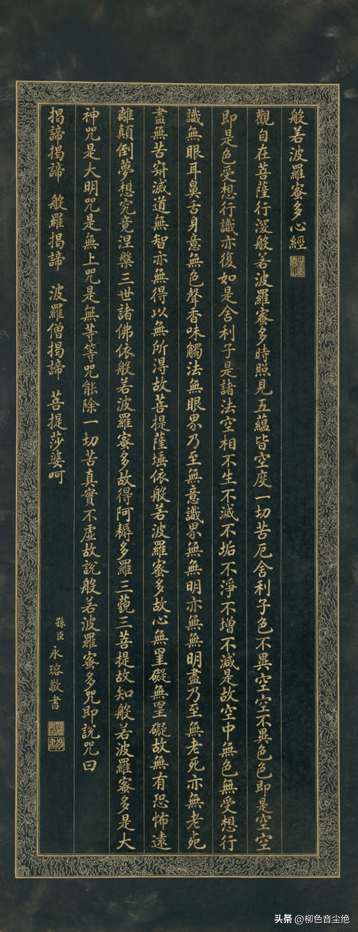 般若波羅蜜多心經
觀自在菩薩行深般若波羅蜜多時照見五蘊皆空度一切苦厄舍利子色不異空空不異色色即是空空
即是色受想行識亦復如是舍利子是諸法空相不生不滅不垢不淨不增不減是故空中無色無受想行
識無眼耳鼻舌身意無色聲香味觸法無眼界乃至無意識界無無明亦無無明盡乃至無老死亦無老死
盡無苦集滅道無智亦無得以無所得故菩提薩埵依般若波羅蜜多故心無罣礙無罣礙故無有恐怖遠
離顛倒夢想究竟涅槃三世諸佛依般若波羅蜜多故得阿耨多羅三藐三菩提故知般若波羅蜜多是大
神咒是大明咒是無上咒是無等等咒能除一切苦真實不虛故說般若波羅蜜多咒即說咒曰
揭諦揭諦 般羅揭諦 波羅僧揭諦 菩提莎婆呵
孫臣永瑢敬書
头条 @柳色音尘绝